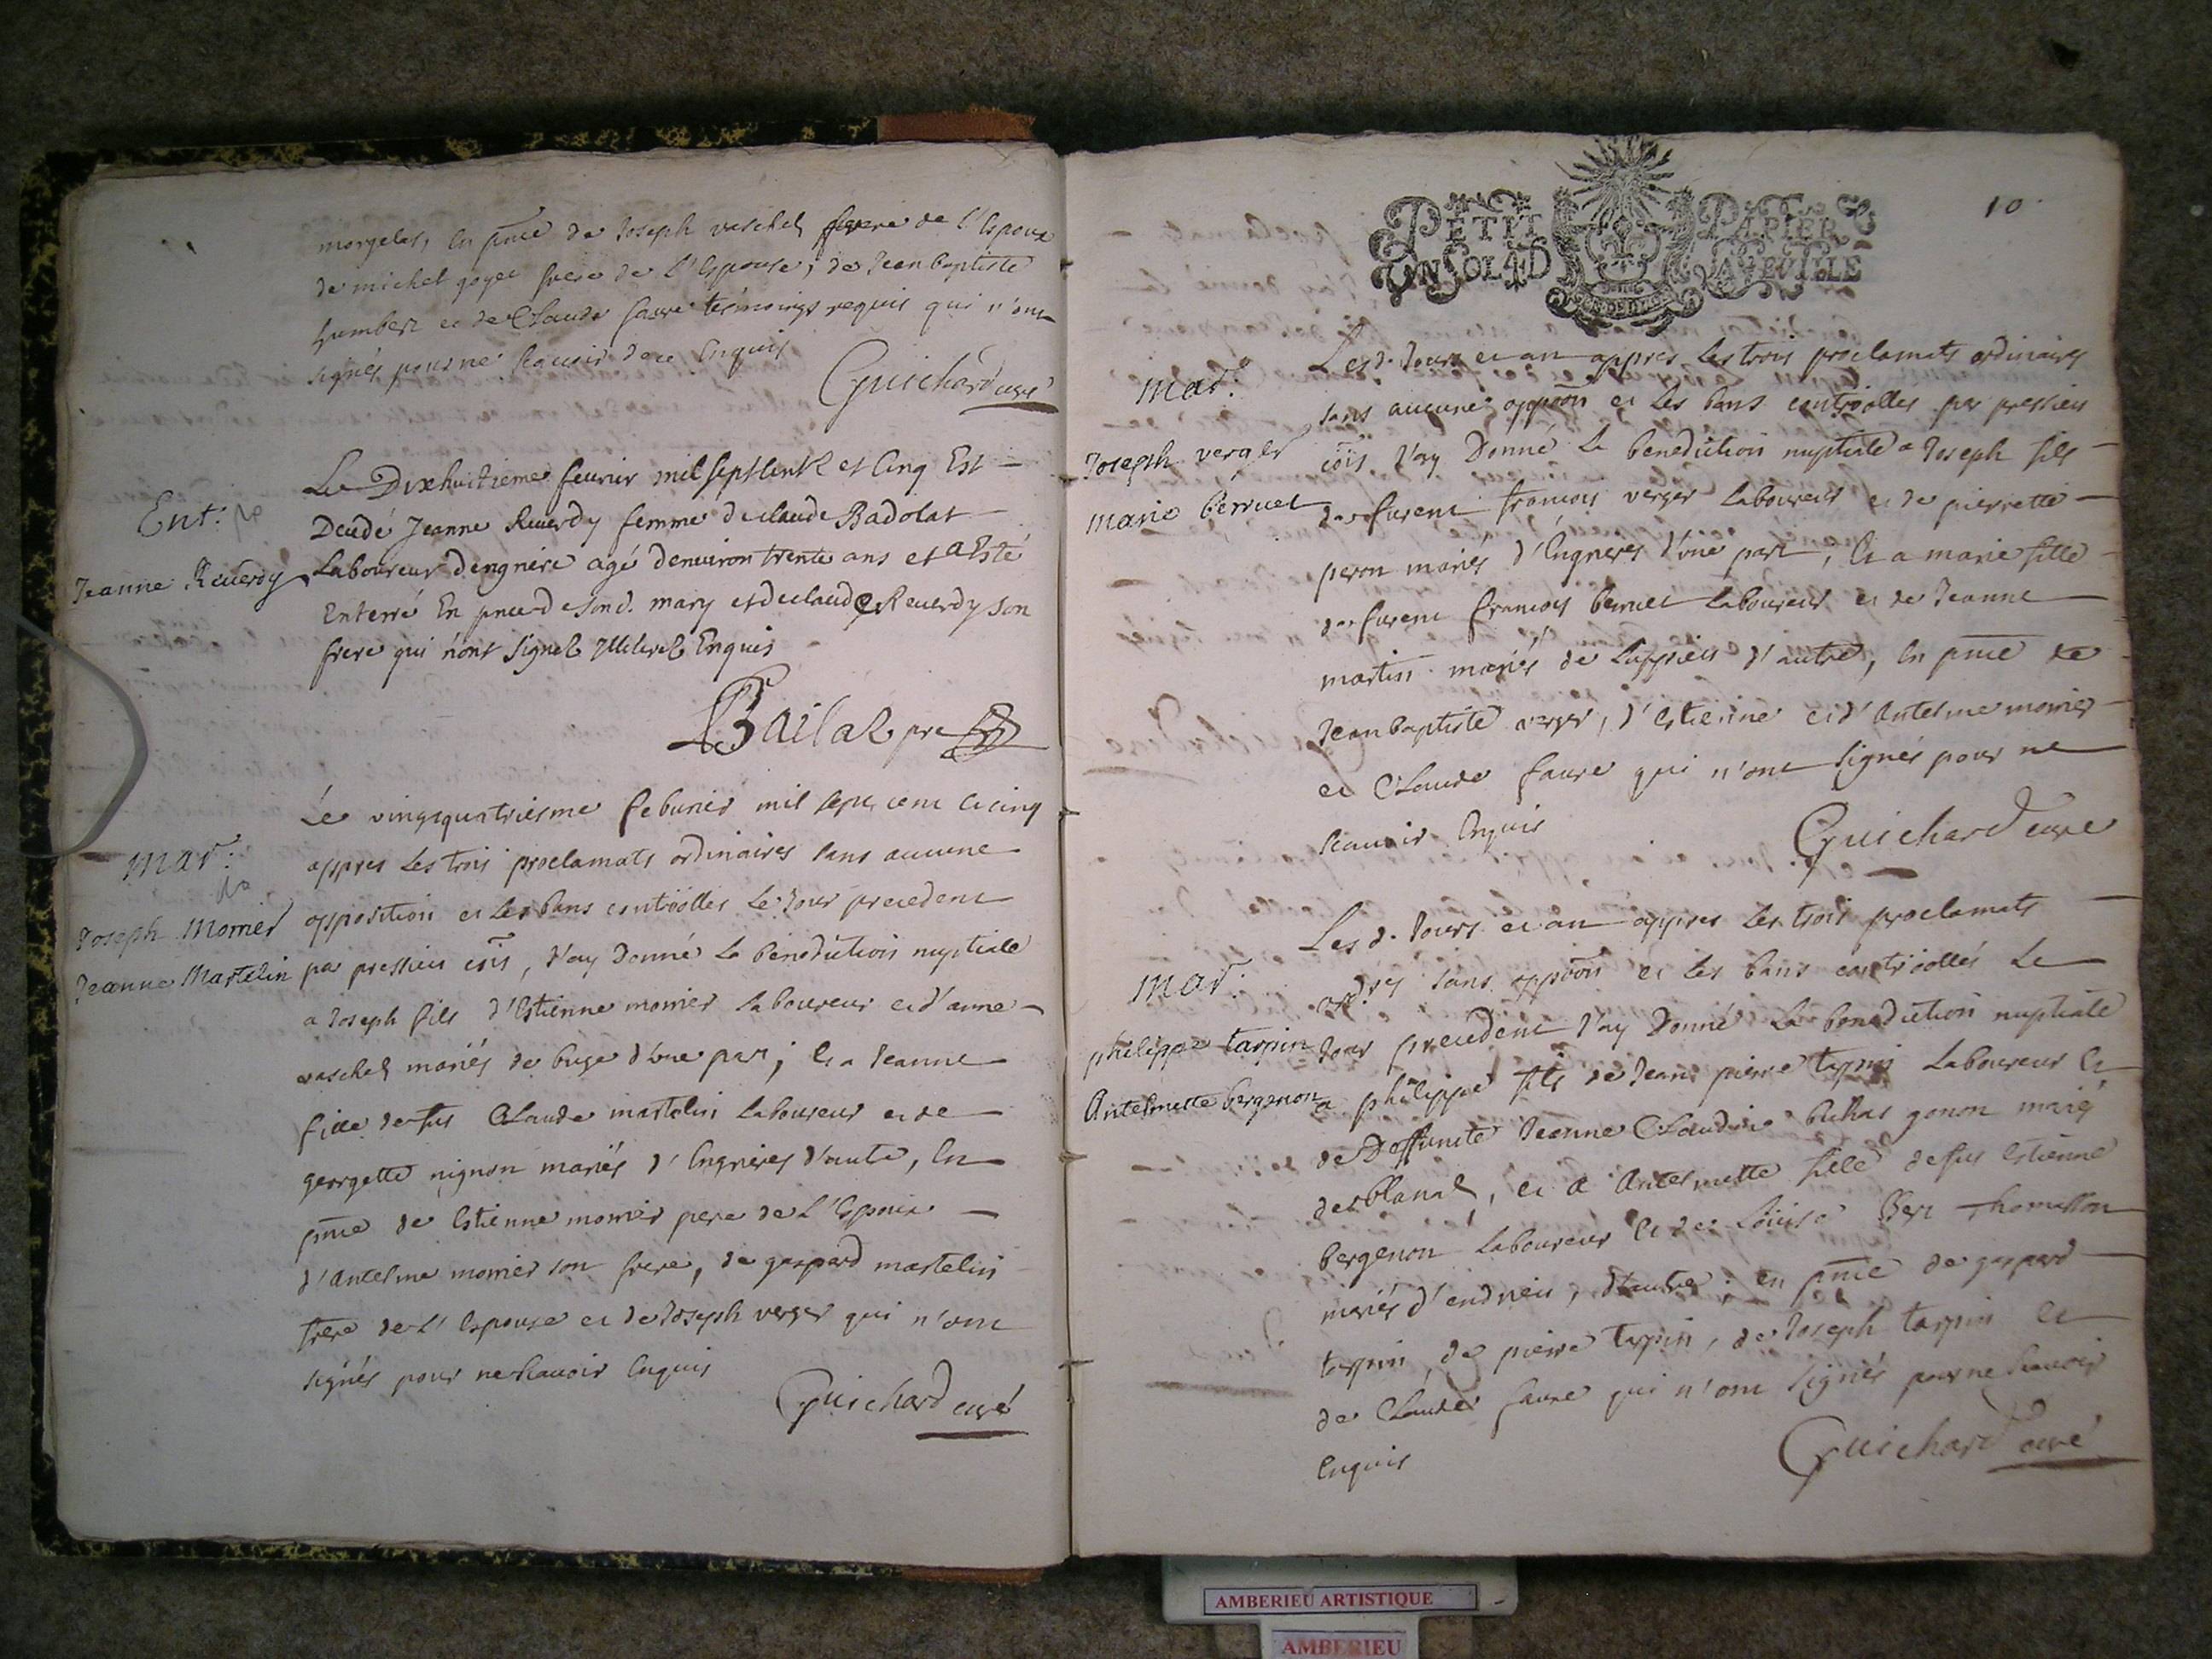 morgelas, en pnce de Joseph vaschel frere de l'Espoux
de michel goyet frere de l'Espouse, de Jean baptiste
humbert et de Claude faure temoings requis qui n'ont
signés pour ne scauoir de ce Enquis
Guichard curé
Ent:
Jeanne Reuerdy
Le Dixhuitieme feurier mil sept Centz et Cinq Est
Decedé Jeanne Reuerdy femme de claude Badolat
Laboureur dengniere agé denuiron trente ans et a Esté
Enterré En pnce de son d. mary et de claude Reuerdy son
frere qui n'ont Signez Illiterez Enquis
Bailat pre
Mar:
Joseph Monier
Jeanne Martelin
Le vingtquatriesme feburier mil sept cent et cinq
appres Les trois proclamats ordinaires sans aucune
opposition et Les bans controolles Le Jour precedent
par pressieu cõis, J'ay Donné La benediction nuptiale
a Joseph fils d'Estienne monier Laboureur et d'anne
vaschel mariés de buge d'une part; Et a Jeanne
fille de fus Claude martelin Laboureur et de
georgette nignon mariés d'Engnieres d'autre, En
pnce de Estienne monier pere de l'Espoux
d'Antelme monier son frere, de gaspard martelin
frere de l'Espouse et de Joseph verger qui n'ont
signés pour ne scauoir Enquis
Guichard curé
10
PETIT PAPIER
UN SOL 4 D LA FEUILLE
Mar:
Joseph verger
Marie berruet
Les d. Jours et an appres Les trois proclamats ordinaires
sans aucune oppoõn et Les bans controolles par pressieu
cõis J'ay Donné La benediction nuptiale a Joseph fils
de furent francois verger Laboureur et de pierrette
peron mariés d'Engneres d'une part, Et a marie fille
de furent francois berruet Laboureur et de Jeanne
martin mariés de Luppieu d'autre, En pnce de
Jean baptiste verger, d'Estienne et d'Antelme monier
et Claude faure qui n'ont signés pour ne
scauoir Enquis
Guichard curé
Mar:
philippe tarpin
Antelmette bergenon
Les d. Jours et an appres Les trois proclamats
ordres sans oppoõn et les bans controollés Le
Jour precedent J'ay Donné La benediction nuptiale
a philippe fils de Jean pierre tarpin Laboureur Et
de Deffuncte Jeanne Claudine gonon mariés
des blanal, et a Antelmette fille de fus Estienne
bergenon Laboureur Et de Louise Thomasson
mariés d'endrieu, d'autre; en pnce de gaspard
tarpin, de pierre tarpin, de Joseph tarpin Et
de Claude faure qui n'ont signés pour ne scauoir
Enquis
Guichard curé
AMBERIEU ARTISTIQUE
AMBERIEU